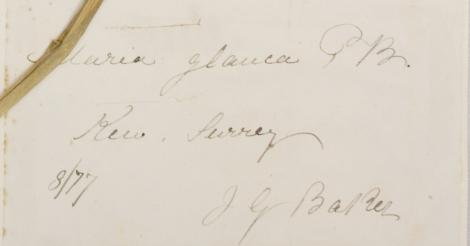 Setaria glauca P B.
Kew. Surrey
8/77
J G Baker